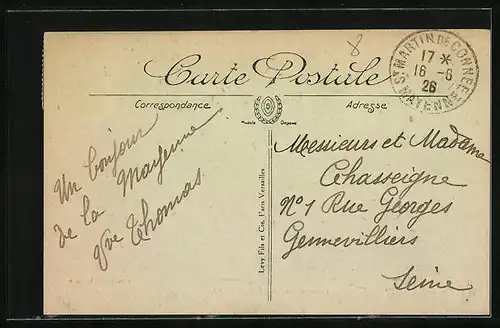 8
Carte Postale
Correspondance
Adresse
Modèle Déposé
ST MARTIN DE CONNÉE
17 *
16 - 6
26
MAYENNE
Un bonjour
de la Mayenne
Thomas
Levy, Fils et Cie, Paris Versailles
Messieurs et Madame
Chasseigne
N° 1 Rue Georges
Gennevilliers
Seine